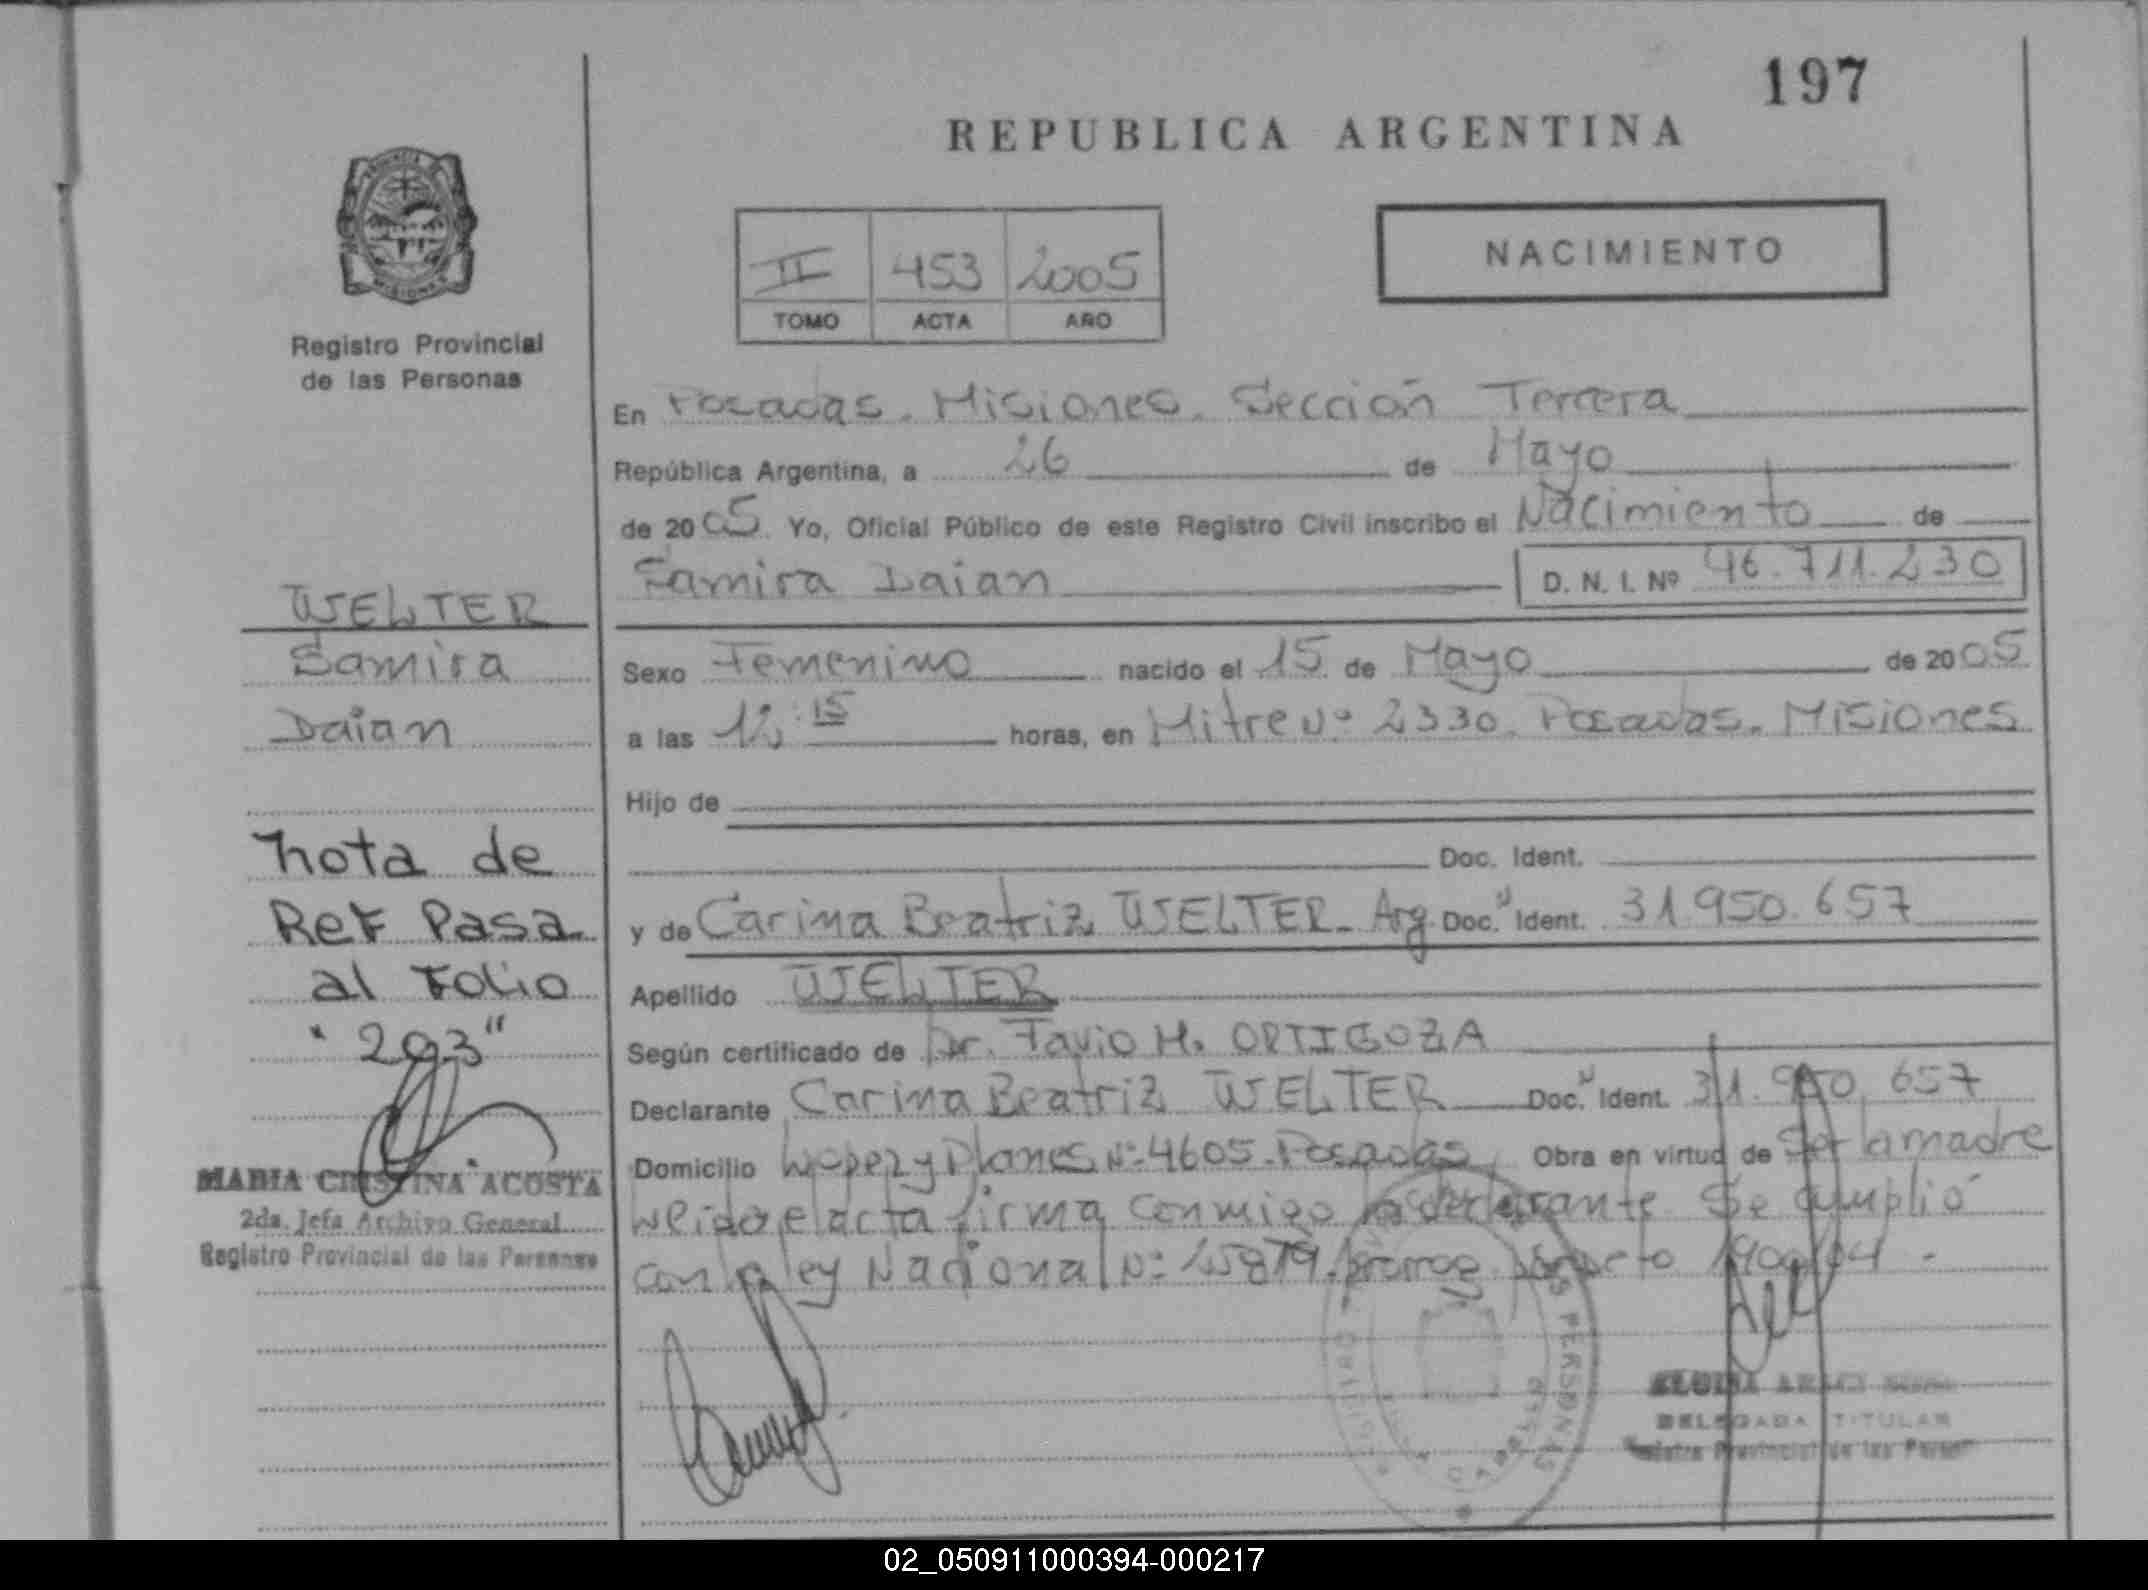 197
REPUBLICA ARGENTINA
PROVINCIA
MISIONES
Registro Provincial
de las Personas
II 453 2005
TOMO ACTA AÑO
NACIMIENTO
En Posadas. Misiones. Sección Tercera
República Argentina, a 26 de Mayo
de 2005. Yo, Oficial Público de este Registro Civil inscribo el Nacimiento de
Samira Daian D. N. I. Nº 46.711.230
WELTER
Samira
Daian
Sexo Femenino nacido el 15 de Mayo de 2005
a las 12:15 horas, en Mitre Nº 2330. Posadas. Misiones
Hijo de
Doc. Ident.
y de Carina Beatriz WELTER. Arg. Doc. Ident. 31.950.657
Apellido WELTER
Según certificado de Dr. Favio H. ORTIGOZA
Declarante Carina Beatriz WELTER Doc. Ident. 31.950.657
Domicilio Lopez y Planes Nº 4605. Posadas Obra en virtud de ser la madre
Leido el acta firma conmigo la declarante. Se cumplió
con la ley Nacional Nº decreto
nota de
Ref Pasa
al Folio
"293"
MARIA CRISTINA ACOSTA
2da. Jefa Archivo General
Registro Provincial de las Personas
DELEGADA TITULAR
Registro Provincial de las Person
02_050911000394-000217